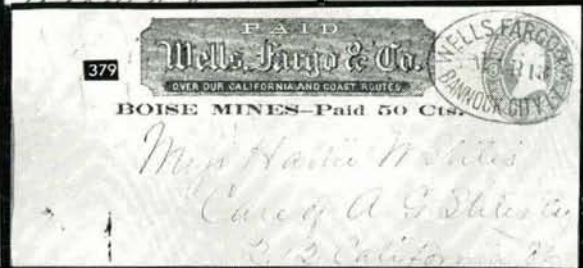 PAID
Wells, Fargo & Co.
OVER OUR CALIFORNIA AND COAST ROUTES
379
WELLS, FARGO &
BANNOCK CITY
BOISE MINES–Paid 50 Cts.
Hattie
Care of A G Stiles
212 California St